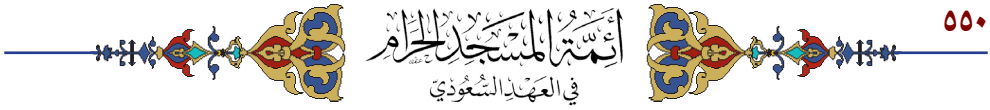 ٥٥٠
أَئِمَّةُ المَسْجِدِ الحَرَامِ
فِي العَهْدِ السُّعُودِيّ